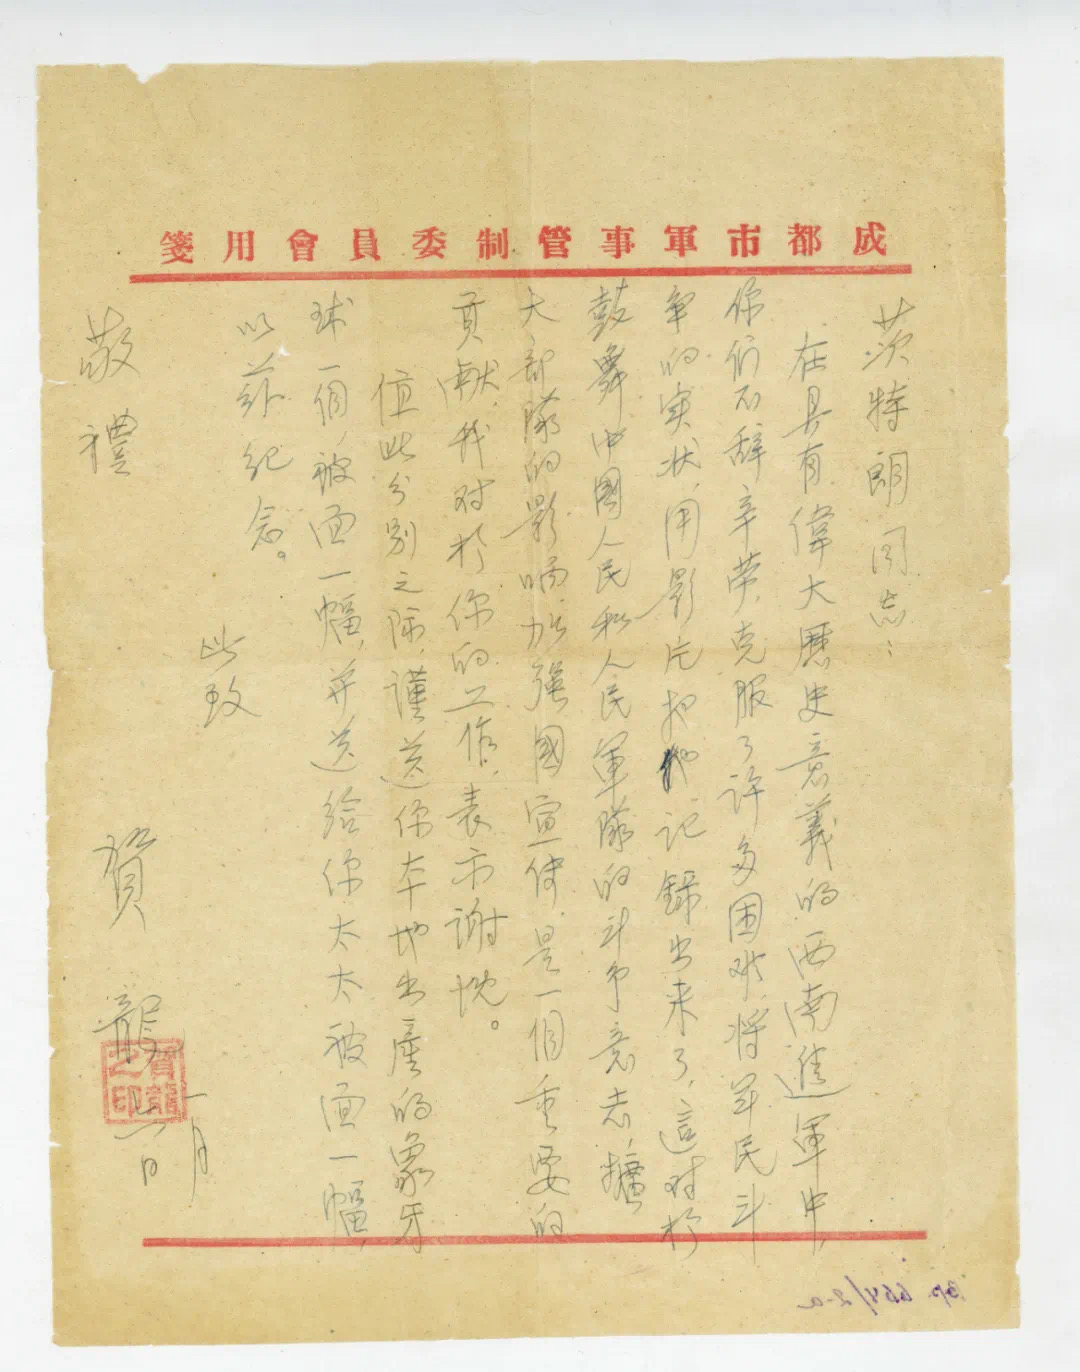 成都市軍事管制委員會用箋
茨特朗同志：
在具有偉大歷史意義的西南進軍中，
你们不辞辛劳，克服了许多困难，将军民斗
争的实状，用影片把他记錄出来了，這对於
鼓舞中國人民和人民軍隊的斗争意志，擴
大部隊的影响，加强國宣传，是一個重要的
貢献，我对於你的工作，表示謝忱。
值此分别之际，谨送你本地出產的象牙
球一個，被面一幅，并送给你太太被面一幅，
以兹纪念。
此致
敬禮
賀龍
一月
日
賀龍之印